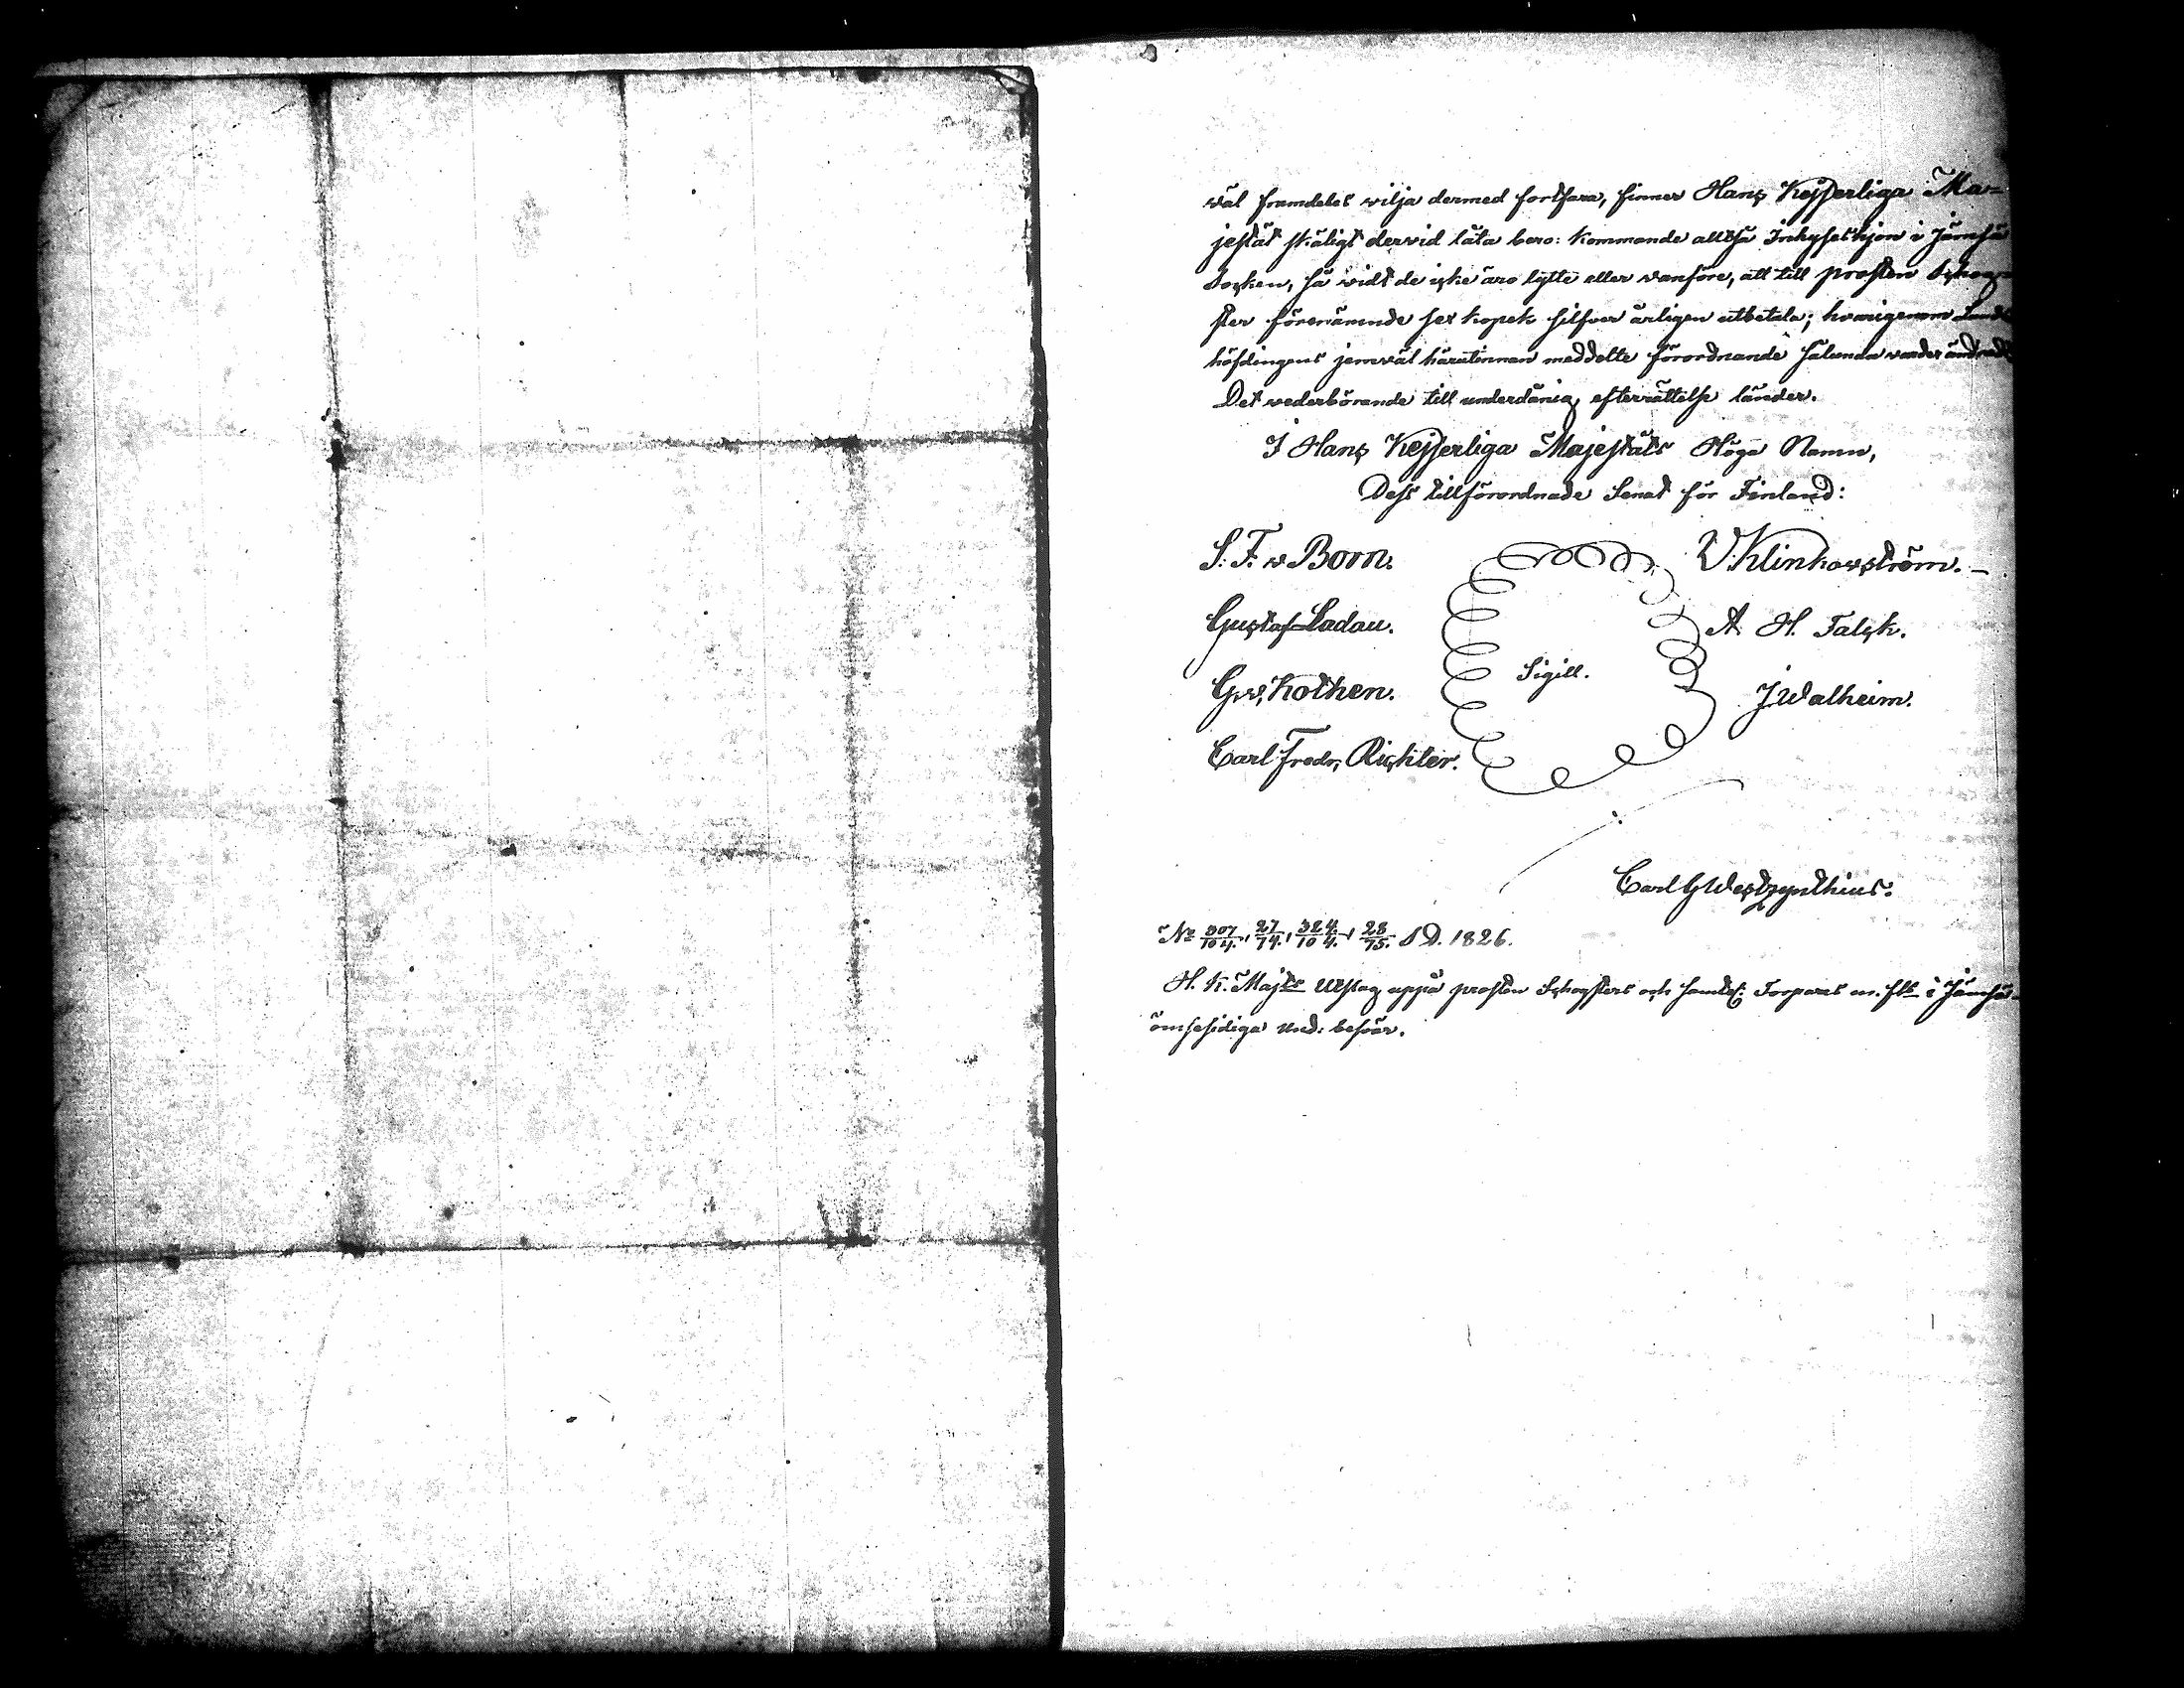 wäl framdeles wilja dermed fortfara, finner Hans Kejserliga Ma=
jestät skäligt dervid låta bero: kommande alltså Inhyseshjon i Jämsä
Socken, så vidt de icke äro lytte eller vanföre, att till prosten
förenämnde sex kopek silfver årligen utbetala; hvarigenom Lands
höfdingens jemväl härutinnan meddelte förordnande sålunda warder ändradt
Det wederbörande till underdånig efterrättelse länder.
I Hans Kejserliga Majestäts Höga Namn,
Dess tillförordnade Senat för Finland:
S. F. v Born. V. Klinkowström. –
Gustaf Ladau. A. H. Falck.
Sigill.
G. v. Kothen. J Walheim.
Carl Fredr, Richter.
Carl G Westzynthius.
No 307/104., 27/74., 324/104., 28/75. S. D. 1826.
H. K. Majts Utslag uppå prosten och samtel: Torpares m. fls i Jämsä
ömsesidiga und: besvär.